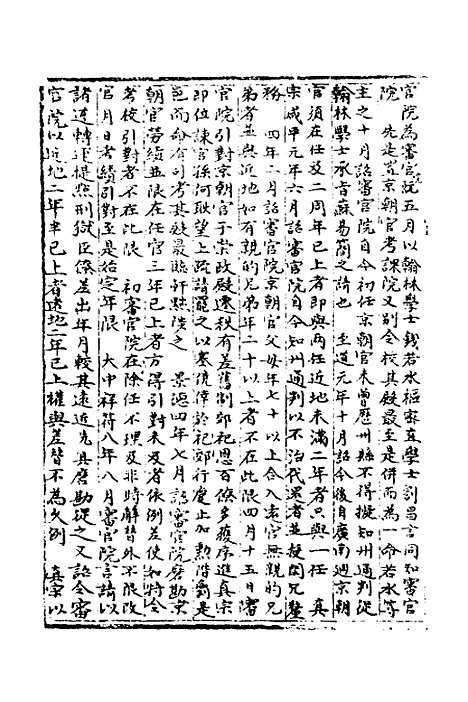 官院為審官院五月以翰林學士錢若水樞密直學士劉昌言同知審官
院 先是置京朝官考課院又別令校其殿最至是併而為一命若水等
主之十月詔審官院自今初任京朝官未曾歷州縣不得擬知州通判從
翰林學士承旨蘇易簡之請也 至道元年十月詔今後自廣南迴京朝
官須在任及二周年已上者即與兩任近地未滿二年者只與一任 真
宗咸平元年六月詔審官院自今知州通判以不治代還者並投閑冗釐
務 四年二月詔審官院京朝官父母年七十以上合入遠官無親的兄
弟者並與近地如有親的兄弟年二十以上者不在此限四月十五日審
官院引對京朝官于崇政殿遷秩有差舊制郊祀恩百僚多復序進真宗
即位諫官孫何耿望上疏請罷之以塞僥倖於祀郊行慶止加勲階爵邑
至而命有司考其殿最臨軒黜陟之 景德四年七月詔審官院磨勘京
朝官勞績並限在任官三年已上者方得引對未及者依例差使如特令
考校引對者不在此限 初審官院在除任不理及非時解替外不限改
官月日考績引對至是始定年限 大中祥符八年八月審官院言請以
諸道轉運提點刑獄臣僚差出年月較其遠近先具磨勘從之又詔令審
官院以近地二年半已上者遠地二年已上權與差替不為久例 真宗以